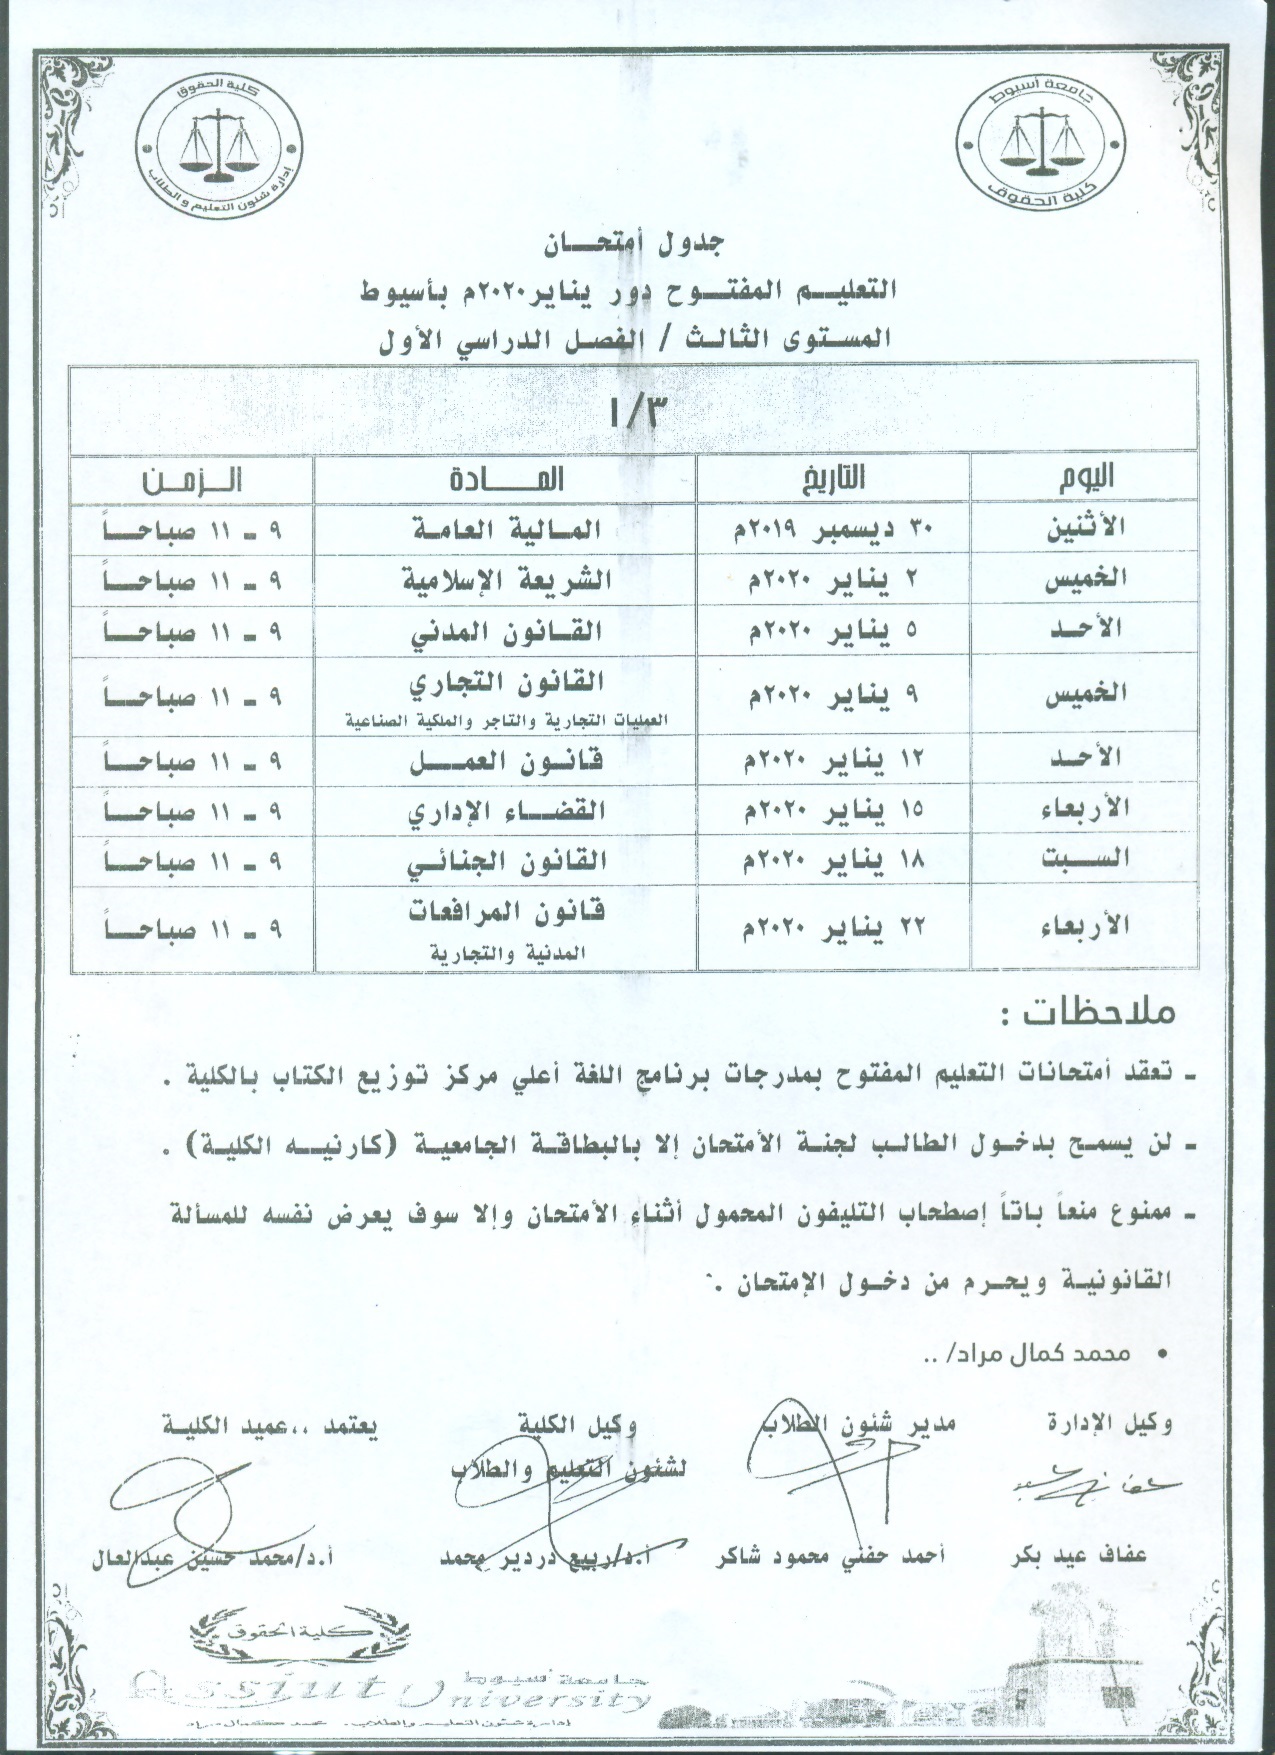 جامعة أسيوط
كلية الحقوق
كلية الحقوق
إدارة شئون التعليم والطلاب
جدول أمتحـــان
التعليـــم المفتـــوح دور يناير٢٠٢٠م بأسيوط
المستوى الثالث / الفصل الدراسي الأول
١/٣
اليوم التاريخ المـــادة الـــزمـــن
الأثنين ٣٠ ديسمبر ٢٠١٩م المـالية العامـة ٩ ـ ١١ صباحـــاً
الخميس ٢ يناير ٢٠٢٠م الشريعة الإسلامية ٩ ـ ١١ صباحـــاً
الأحـد ٥ يناير ٢٠٢٠م القـانون المدني ٩ ـ ١١ صباحـــاً
الخميس ٩ يناير ٢٠٢٠م القانون التجاري ٩ ـ ١١ صباحـــاً
العمليات التجارية والتاجر والملكية الصناعية
الأحـد ١٢ يناير ٢٠٢٠م قـانـون العمـــل ٩ ـ ١١ صباحـــاً
الأربعاء ١٥ يناير ٢٠٢٠م القضـــاء الإداري ٩ ـ ١١ صباحـــاً
الســـبت ١٨ يناير ٢٠٢٠م القانون الجنائـــي ٩ ـ ١١ صباحـــاً
الأربعاء ٢٢ يناير ٢٠٢٠م قـانون المرافعات ٩ ـ ١١ صباحـــاً
المدنية والتجارية
ملاحظات :
ـ تعقد أمتحانات التعليم المفتوح بمدرجات برنامج اللغة أعلي مركز توزيع الكتاب بالكلية .
ـ لن يسمح بدخول الطالب لجنة الأمتحان إلا بالبطاقة الجامعية (كارنيـه الكلية) .
ـ ممنوع منعاً باتاً إصطحاب التليفون المحمول أثناء الأمتحان وإلا سوف يعرض نفسه للمسألة
القانونية ويحرم من دخول الإمتحان .
• محمد كمال مراد/ ..
وكيل الإدارة مدير شئون الطلاب وكيل الكلية يعتمد ،،عميد الكلية
لشئون التعليم والطلاب
عفاف عيد بكر أحمد حفني محمود شاكر أ.د/ربيع دردير محمد أ.د/محمد حسين عبدالعال
كلية الحقوق
جامعة أسيوط
Assiut University
إدارة شئون التعليم والطلاب. محمد كمال مراد